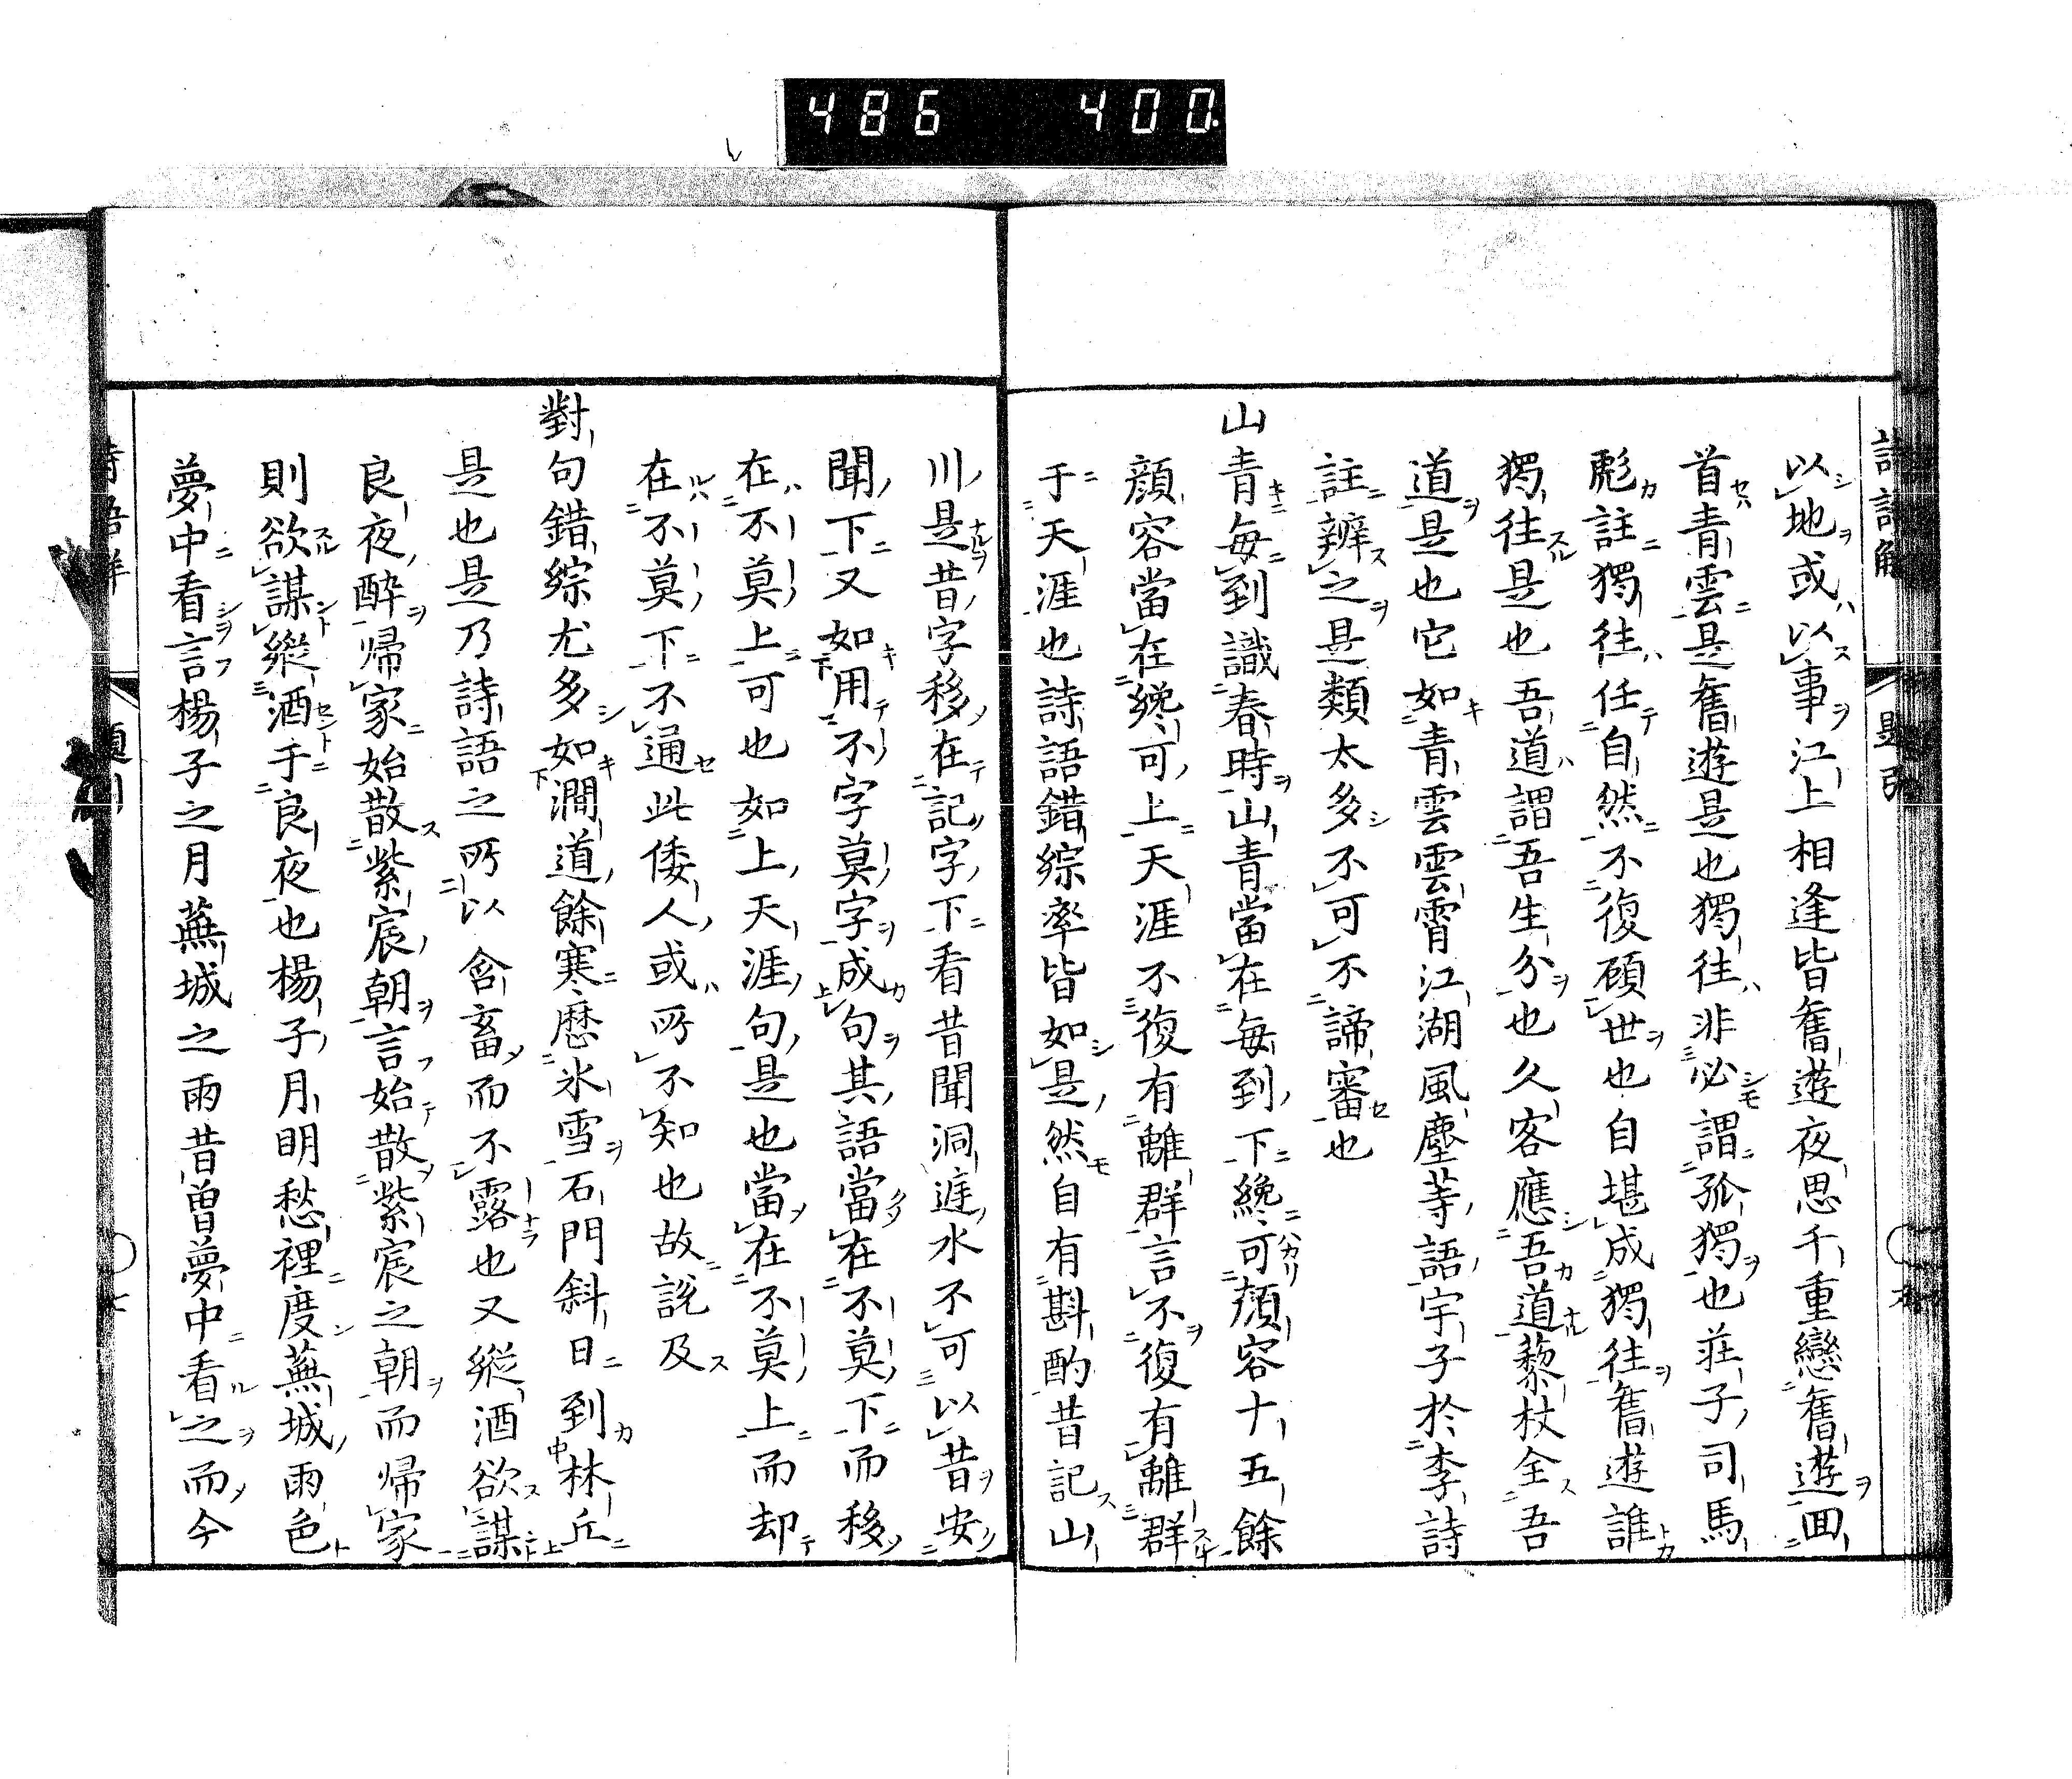 486 400.
以地或以事江上相逢皆舊遊夜思千重戀舊遊回
首青雲是舊遊是也獨往非必謂孤獨也莊子司馬
彪註獨往任自然不復顧世也自堪成獨往舊遊誰
獨往是也吾道謂吾生分也久客應吾道藜杖全吾
道是也它如青雲雲霄江湖風塵等語宇子於李詩
註辨之是類太多不可不諦審也
山青每到識春時山青當在每到下纔可顏容十五餘
顏容當在纔可上天涯不復有離群言不復有離群
于天涯也詩語錯綜率皆如是然自有斟酌昔記山
川是昔字移在記字下看昔聞洞庭水不可以昔安
聞下又如用不字莫字成句其語當在不莫下而移
在不莫上可也如上天涯句是也當在不莫上而却
在不莫下不通此倭人或所不知也故說及
對句錯綜尤多如澗道餘寒歷氷雪石門斜日到林丘
是也是乃詩語之所以含畜而不露也又縱酒欲謀
良夜醉帰家始散紫宸朝言始散紫宸之朝而帰家
則欲謀縱酒于良夜也楊子月明愁裡度蕪城雨色
夢中看言楊子之月蕪城之雨昔曾夢中看之而今